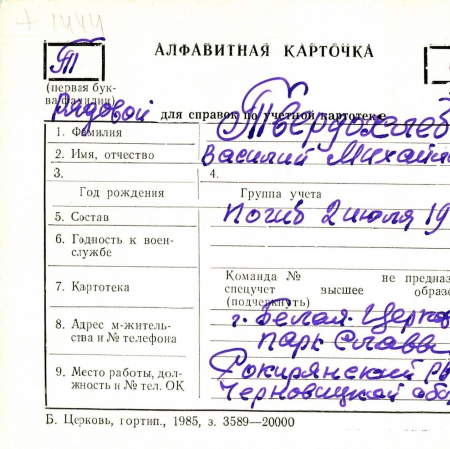 + 1944
АЛФАВИТНАЯ КАРТОЧКА
Т
(первая бук-
ва фамилии)
Рядовой
для справок по учетной картотеке
1. Фамилия
Твердохлеб
2. Имя, отчество
Василий Михайл
3.
Год рождения
4.
Группа учета
5. Состав
Погиб 2 июля 19
6. Годность к воен-
службе
7. Картотека
Команда № не предназ
спецучет высшее образо
(подчеркнуть)
8. Адрес м-житель-
ства и № телефона
г. Белая-Церков
парк Славы
9. Место работы, дол-
жность и № тел. ОК
Сокирянский р
Черновицкой обл
Б. Церковь, гортип., 1985, з. 3589—20000